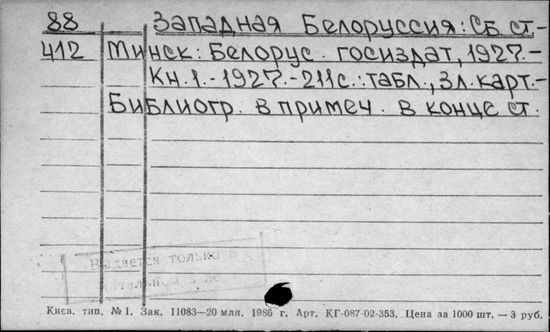 88 Западная Белоруссия: Сб. ст.-
412 Минск: Белорус. госиздат, 1927.-
Кн.1.-1927.-211с.: табл., 3л. карт.-
Библиогр. в примеч. в конце ст.
Выдается только в
читальном зале
Киев. тип. №1. Зак. 11083—20 млн. 1986 г. Арт. КГ-087-02-353. Цена за 1000 шт. — 3 руб.